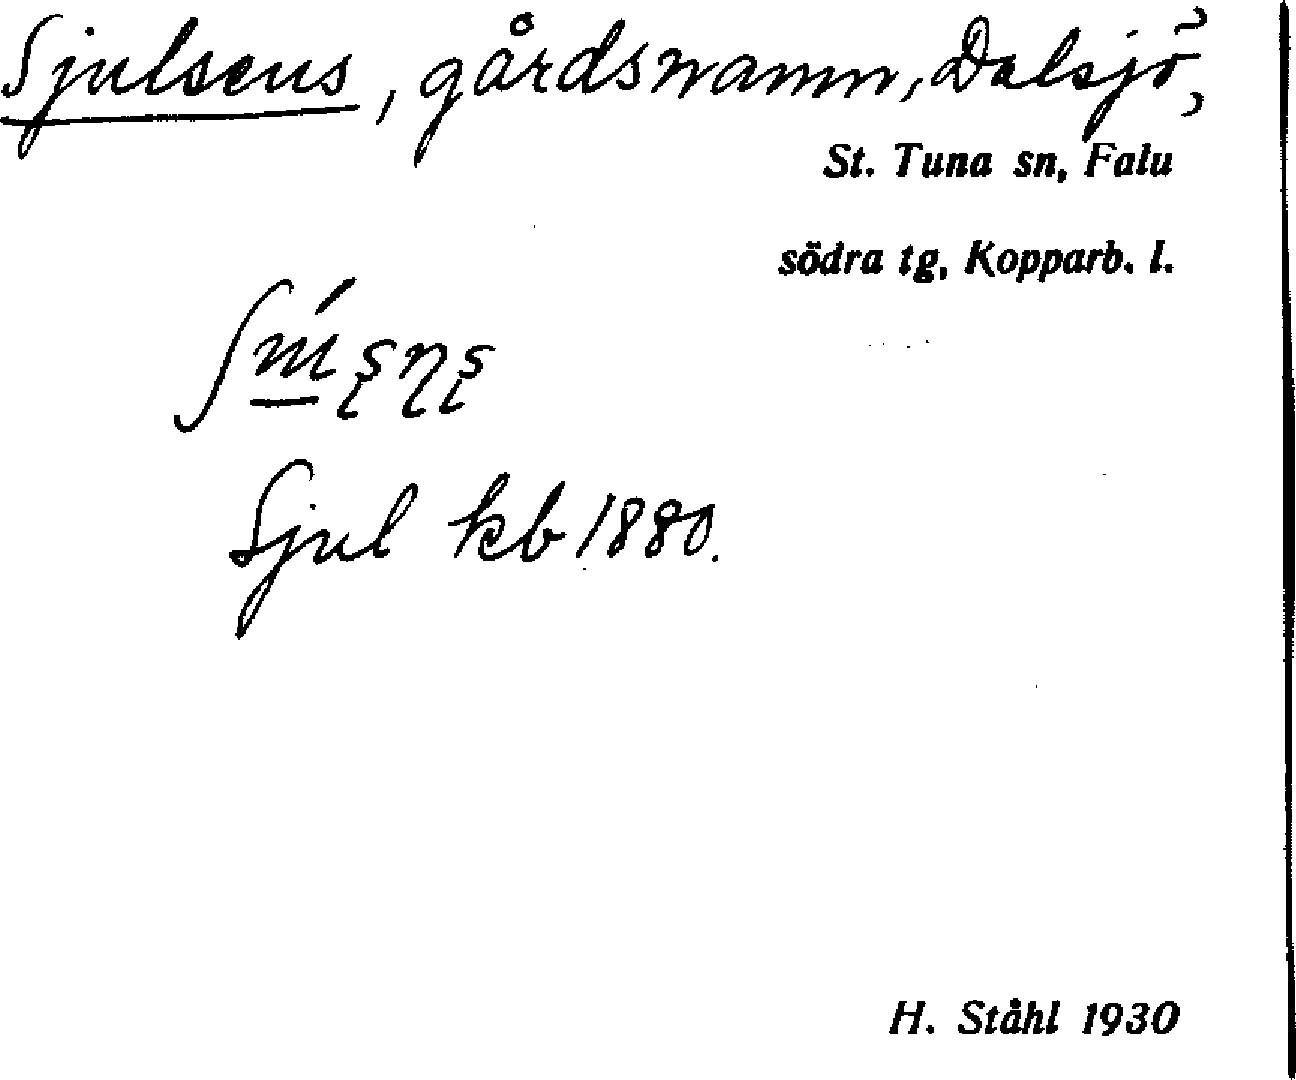 Sjulsens, gårdsnamn, Dalsjö,
St. Tuna sn, Falu
södra tg, Kopparb. l.
Sjul kb 1880.
H. Ståhl 1930